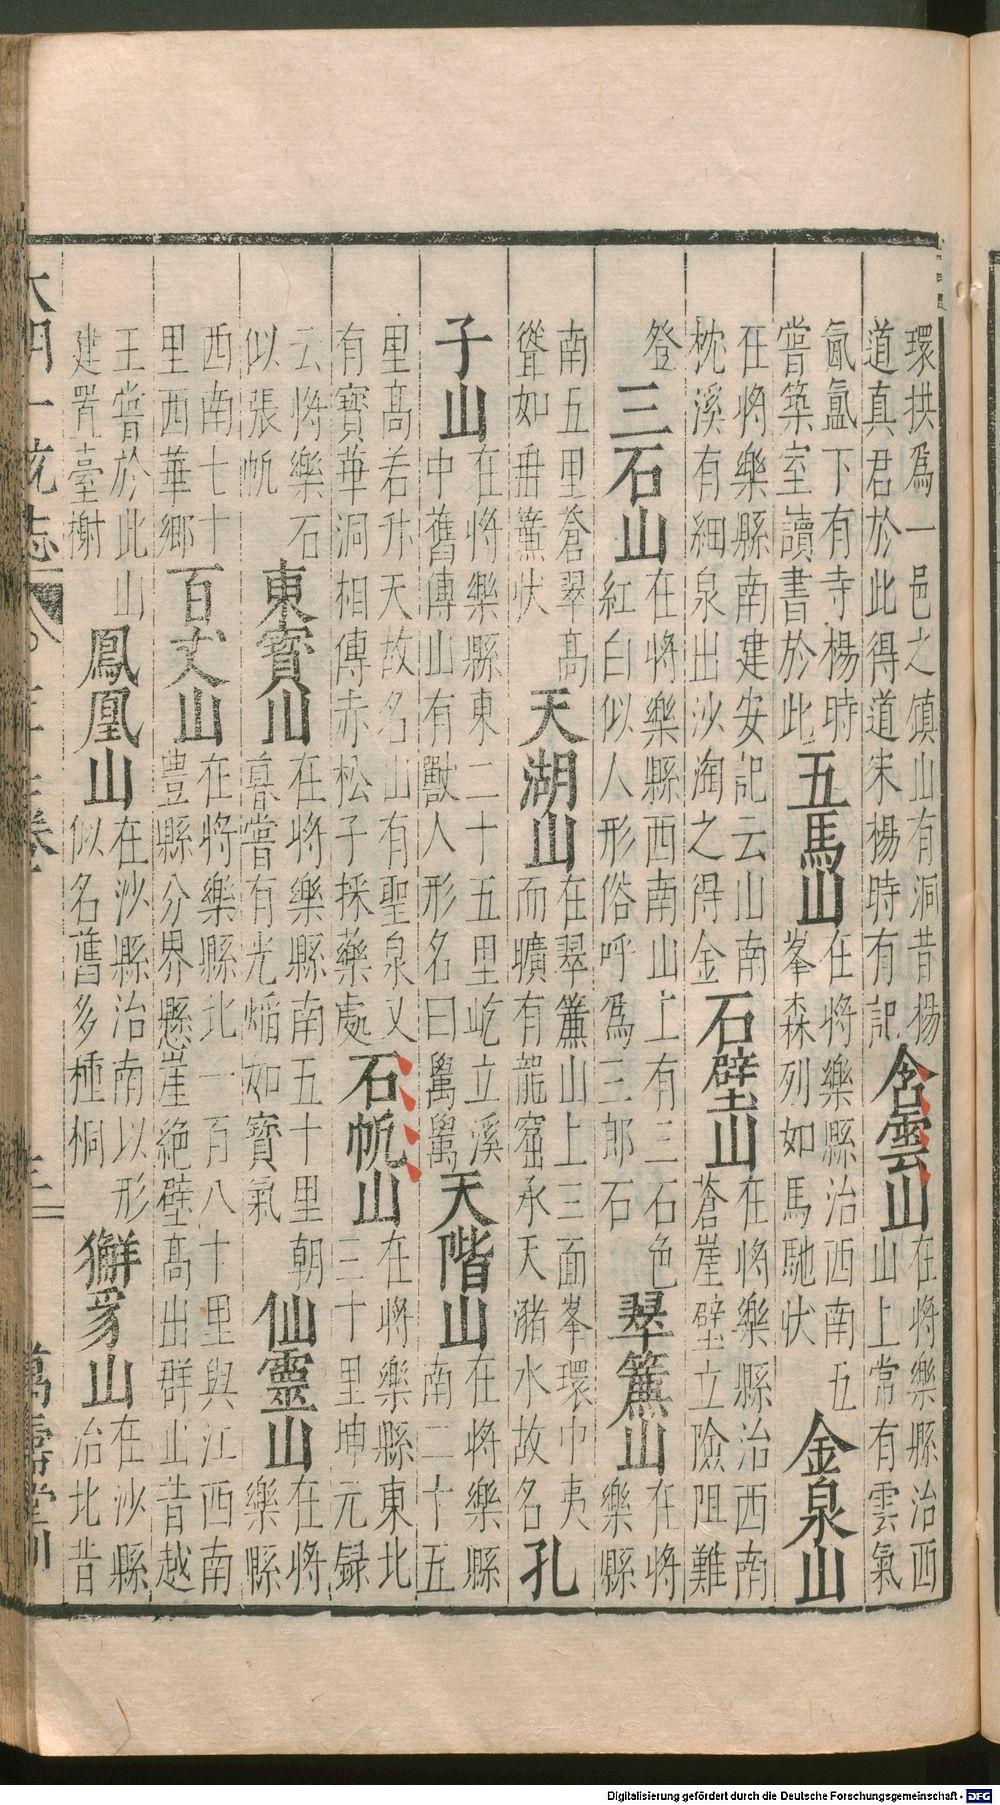 環拱爲一邑之鎮山有洞昔楊道真君於此得道宋楊時有記含雲山在將樂縣治西山上常有雲氣
氤氳下有寺楊時嘗築室讀書於此五馬山在將樂縣治西南五峯森列如馬馳狀金泉山
在將樂縣南建安記云山南枕溪有細泉出沙淘之得金石壁山在將樂縣治西南蒼崖壁立險阻難
登三石山在將樂縣西南山上有三石色紅白似人形俗呼爲三郎石翠簾山在將樂縣
南五里蒼翠高聳如冊簾狀天湖山在翠簾山上三面峯環中夷而曠有龍窟承天瀦水故名孔
子山在將樂縣東二十五里屹立溪中舊傳山有獸人形名曰天階山在將樂縣南二十五
里高若升天故名山有聖泉又有寶華洞相傳赤松子採藥處石帆山在將樂縣東北三十里坤元録
云將樂石似張帆東寶山在將樂縣南五十里朝暮嘗有光焰如寶氣仙靈山在將樂縣
西南七十里西華鄉百丈山在將樂縣北一百八十里與江西南豊縣分界懸崖絶壁高出群山昔越
王嘗於此山建置臺榭鳳凰山在沙縣治南以形似名舊多種桐獬豸山在沙縣治北昔
大明一統志 萬壽堂刊
Digitalisierung gefördert durch die Deutsche Forschungsgemeinschaft - DFG